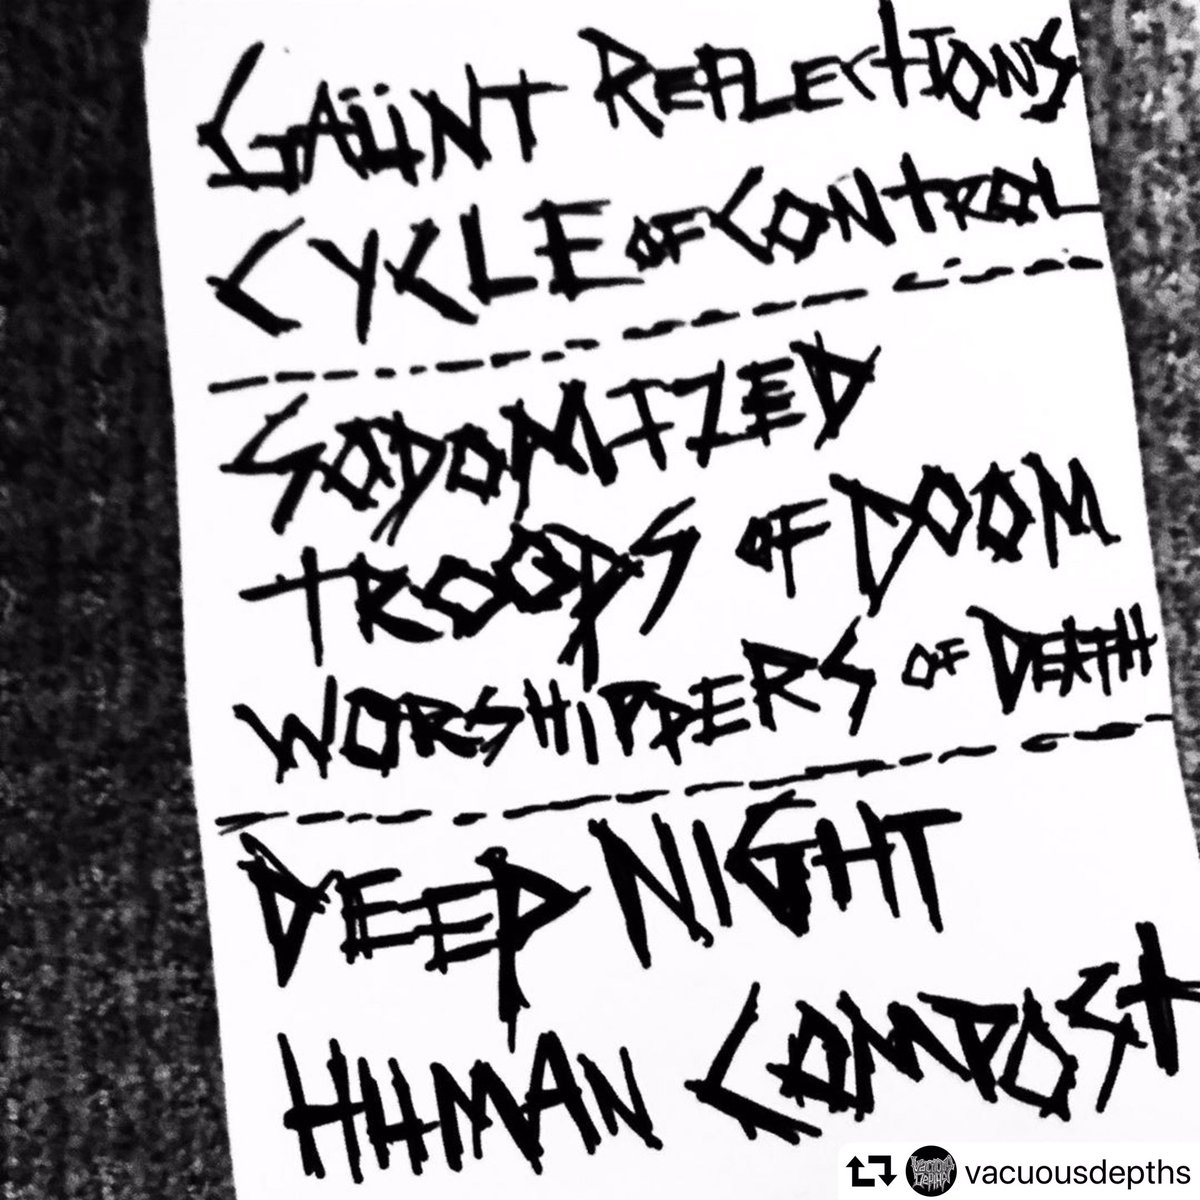 GAÜNT REFLECTIONS
CYCLE OF CONTROL
SODOMIZED
TROOPS OF DOOM
WORSHIPPERS OF DEATH
DEEP NIGHT
HUMAN COMPOST
vacuousdepths